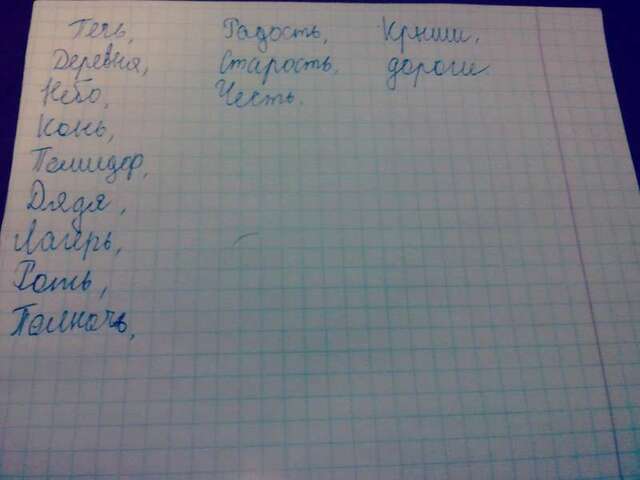 Печь,
Деревня,
Небо,
Конь,
Помидор,
Дядя,
Лагерь,
Полночь,
Радость,
Старость.
Честь.
Крыши,
дороги